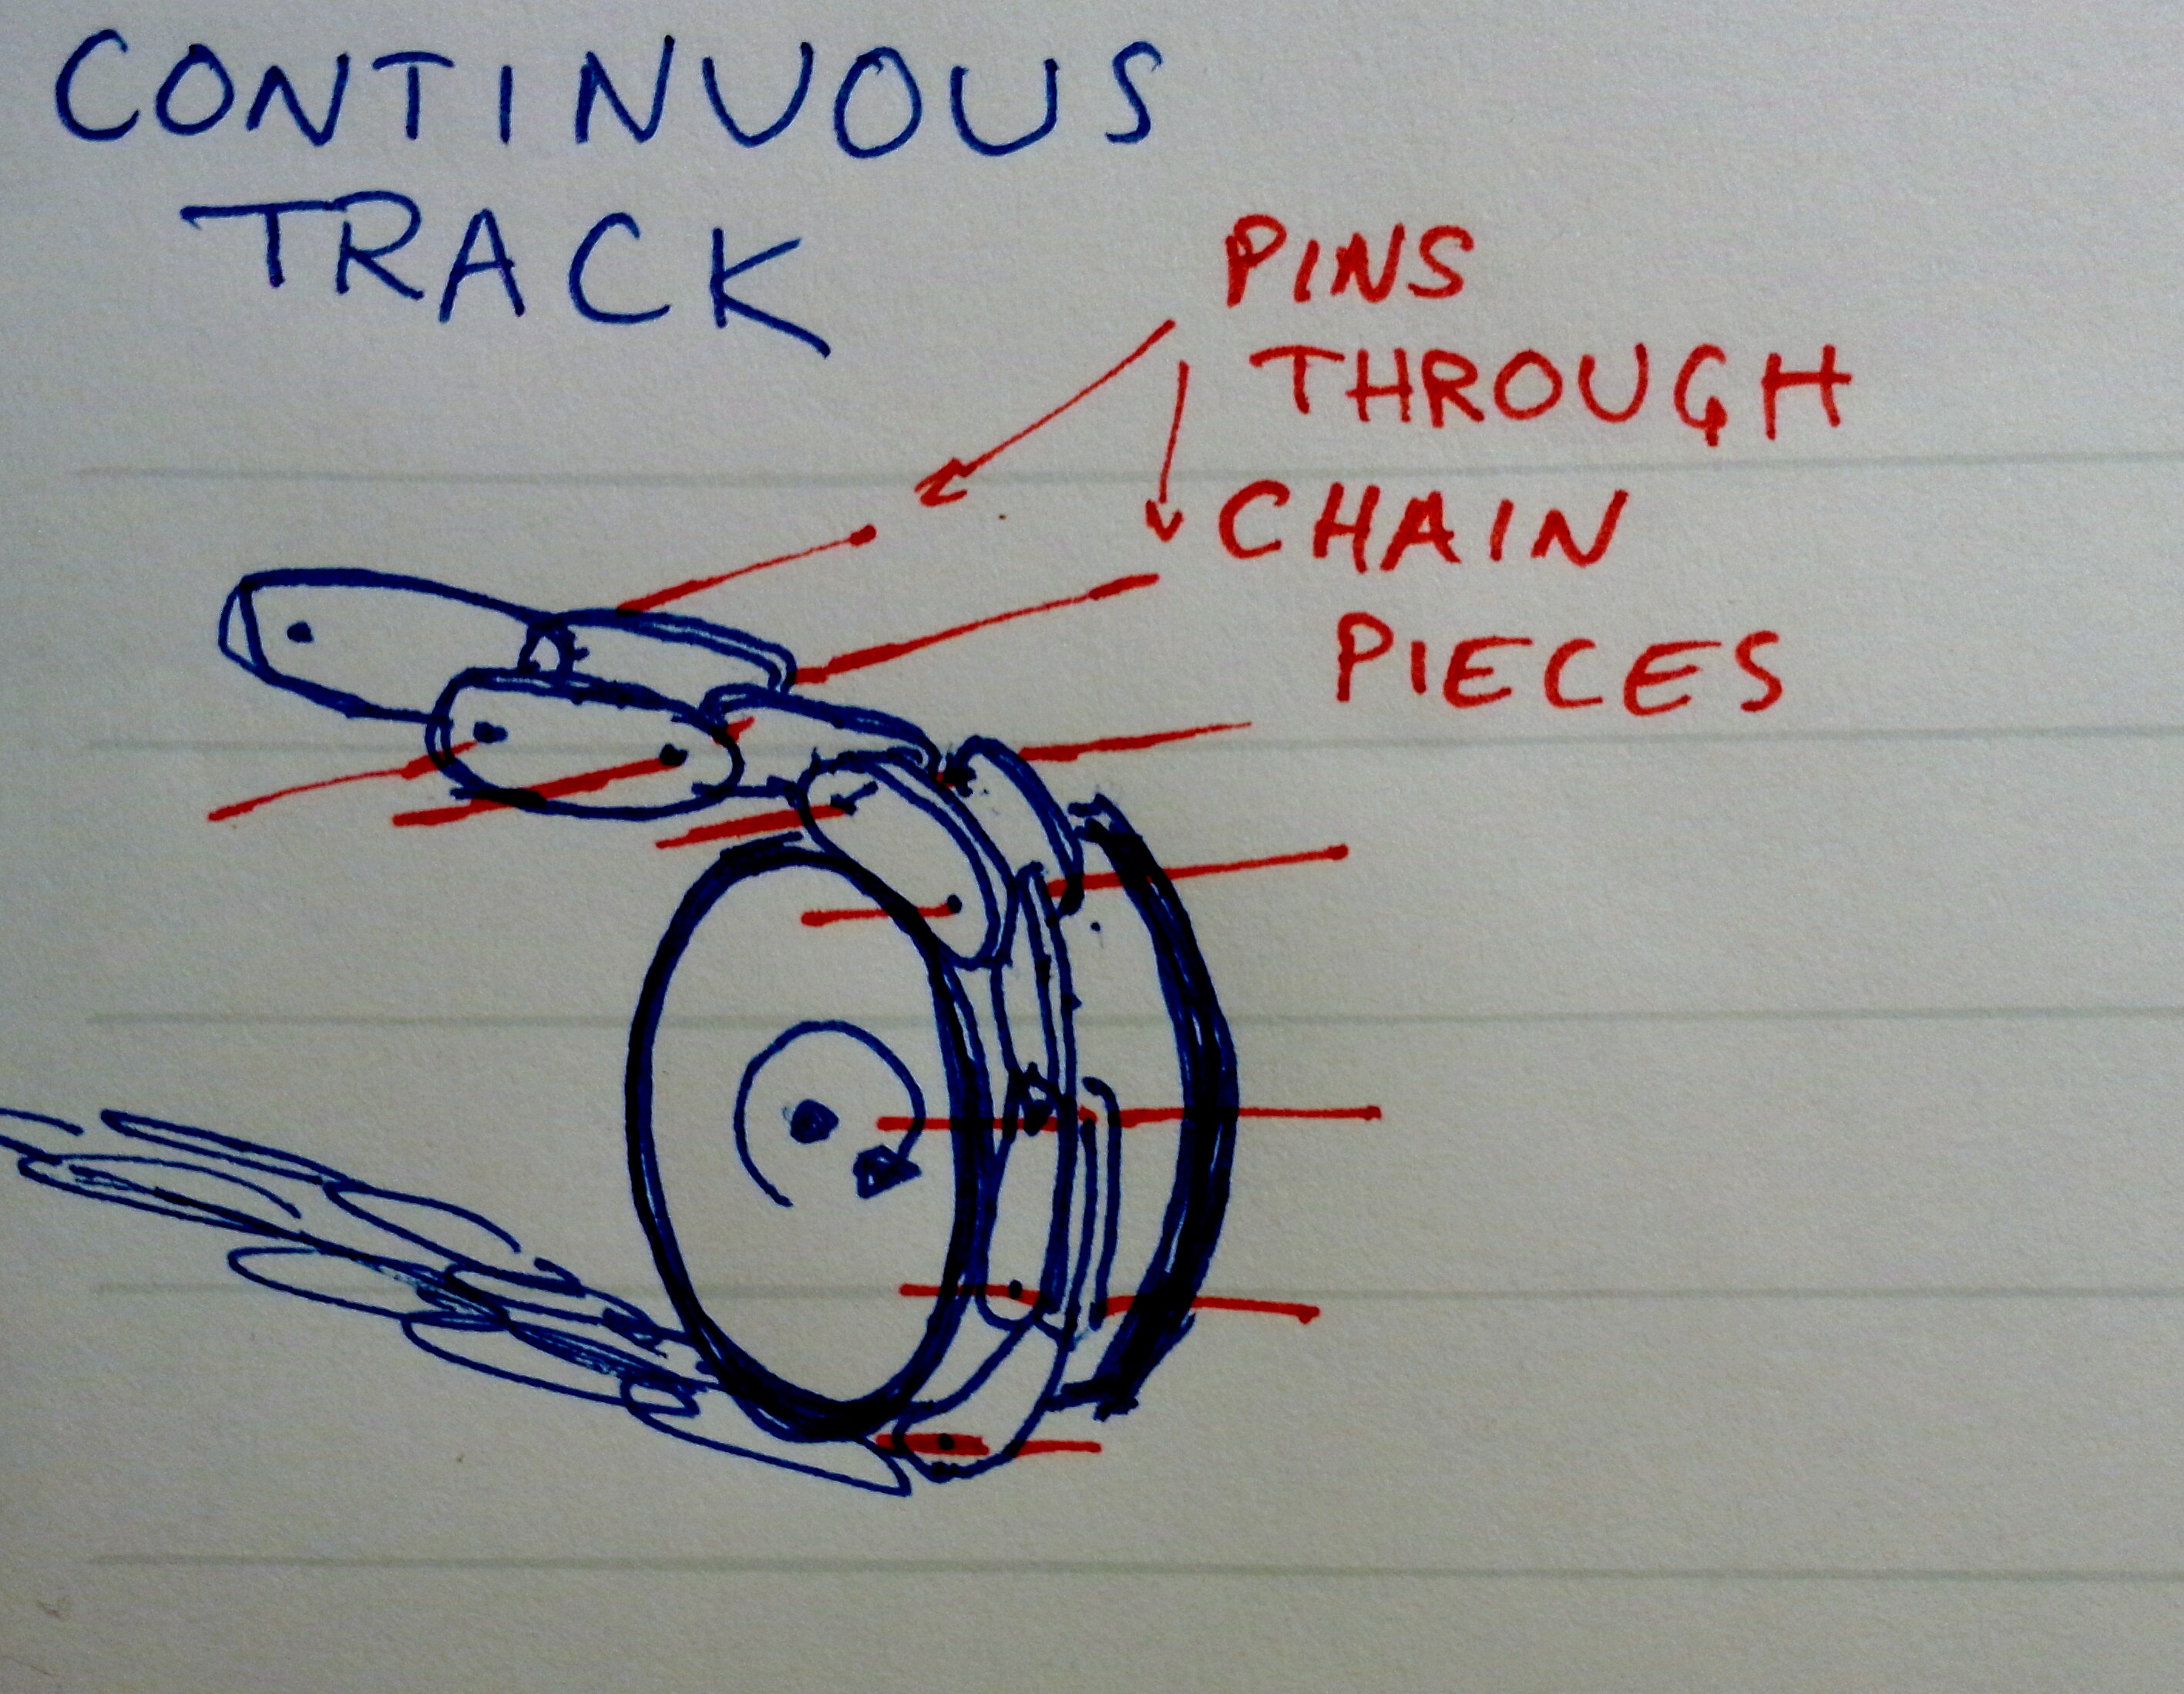 CONTINUOUS
TRACK
PINS
THROUGH
CHAIN
PIECES